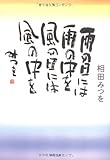 雨の日には
雨の中を
風の日には
風の中を
相田みつを